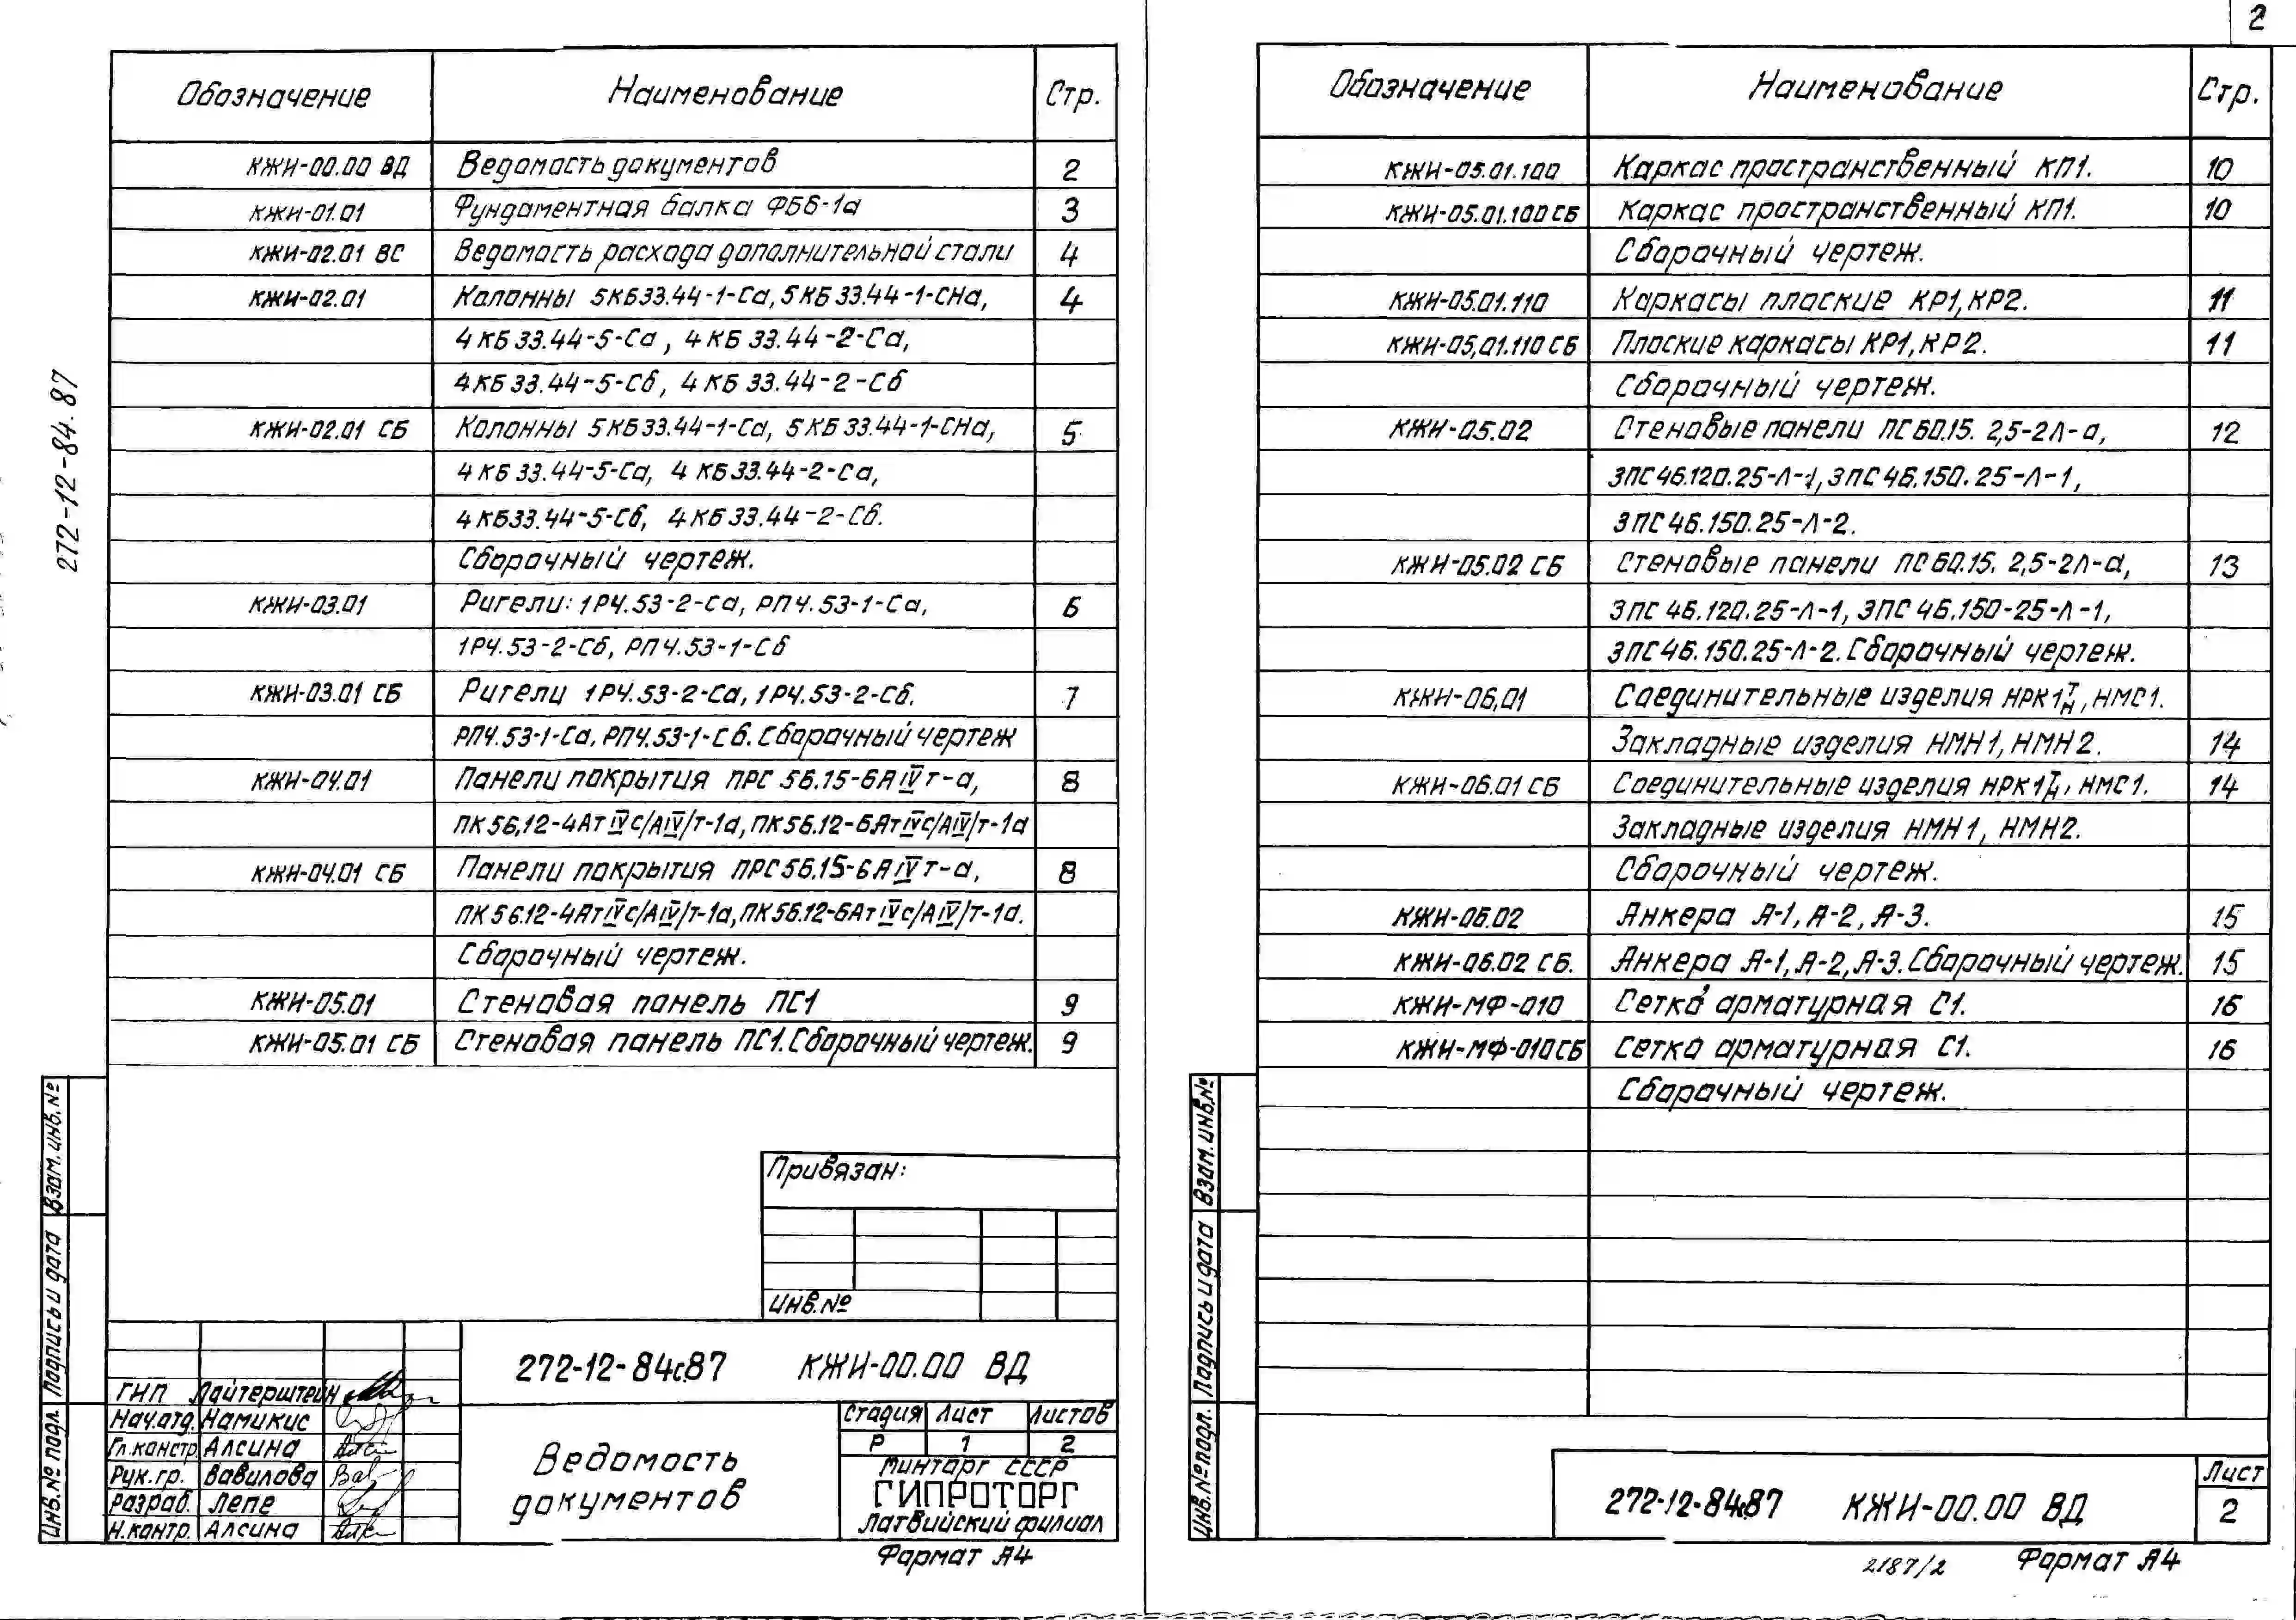 2
272-12-84.87
Обозначение Наименование Стр.
КЖИ-00.00 ВД Ведомость документов 2
КЖИ-01.01 Фундаментная балка ФБ6-1а 3
КЖИ-02.01 ВС Ведомость расхода дополнительной стали 4
КЖИ-02.01 Колонны 5КБ33.44-1-Са, 5КБ33.44-1-СНа, 4
4КБ33.44-5-Са, 4КБ33.44-2-Са,
4КБ33.44-5-Сб, 4КБ33.44-2-Сб
КЖИ-02.01 СБ Колонны 5КБ33.44-1-Са, 5КБ33.44-1-СНа, 5
4КБ33.44-5-Са, 4КБ33.44-2-Са,
4КБ33.44-5-Сб, 4КБ33.44-2-Сб.
Сборочный чертеж.
КЖИ-03.01 Ригели: 1РЧ.53-2-Са, РПЧ.53-1-Са, 6
1РЧ.53-2-Сб, РПЧ.53-1-Сб
КЖИ-03.01 СБ Ригели 1РЧ.53-2-Са, 1РЧ.53-2-Сб, 7
РПЧ.53-1-Са, РПЧ.53-1-Сб. Сборочный чертеж
КЖИ-04.01 Панели покрытия ПРС 56.15-6АIVт-а, 8
ПК56.12-4АтIVс/АIV/т-1а, ПК56.12-6АтIVс/АIV/т-1а
КЖИ-04.01 СБ Панели покрытия ПРС56.15-6АIVт-а, 8
ПК56.12-4АтIVс/АIV/т-1а, ПК56.12-6АтIVс/АIV/т-1а.
Сборочный чертеж.
КЖИ-05.01 Стеновая панель ПС1 9
КЖИ-05.01 СБ Стеновая панель ПС1. Сборочный чертеж. 9
Привязан:
Инв.№
272-12-84с.87 КЖИ-00.00 ВД
ГИП Лайтерштейн
Нач.отд. Намикис
Гл.констр. Алсина
Рук.гр. Вавилова
Разраб. Лепе
Н.контр. Алсина
Ведомость
документов
Стадия Лист Листов
Р 1 2
Минторг СССР
ГИПРОТОРГ
Латвийский филиал
Формат А4
Инв.№ подл. Подпись и дата Взам.инв.№
Обозначение Наименование Стр.
КЖИ-05.01.100 Каркас пространственный КП1. 10
КЖИ-05.01.100 СБ Каркас пространственный КП1. 10
Сборочный чертеж.
КЖИ-05.01.110 Каркасы плоские КР1, КР2. 11
КЖИ-05.01.110 СБ Плоские каркасы КР1, КР2. 11
Сборочный чертеж.
КЖИ-05.02 Стеновые панели ПС60.15. 2,5-2Л-а, 12
3ПС46.120.25-Л-1, 3ПС46.150.25-Л-1,
3ПС46.150.25-Л-2.
КЖИ-05.02 СБ Стеновые панели ПС60.15. 2,5-2Л-а, 13
3ПС46.120.25-Л-1, 3ПС46.150-25-Л-1,
3ПС46.150.25-Л-2. Сборочный чертеж.
КЖИ-06.01 Соединительные изделия НРК1т/н, НМС1.
Закладные изделия НМН1, НМН2. 14
КЖИ-06.01 СБ Соединительные изделия НРК1т/н, НМС1. 14
Закладные изделия НМН1, НМН2.
Сборочный чертеж.
КЖИ-06.02 Анкера А-1, А-2, А-3. 15
КЖИ-06.02 СБ. Анкера А-1, А-2, А-3. Сборочный чертеж. 15
КЖИ-МФ-010 Сетка арматурная С1. 16
КЖИ-МФ-010СБ Сетка арматурная С1. 16
Сборочный чертеж.
272-12-84с.87 КЖИ-00.00 ВД
Лист
2
2187/2 Формат А4
Инв.№ подл. Подпись и дата Взам.инв.№